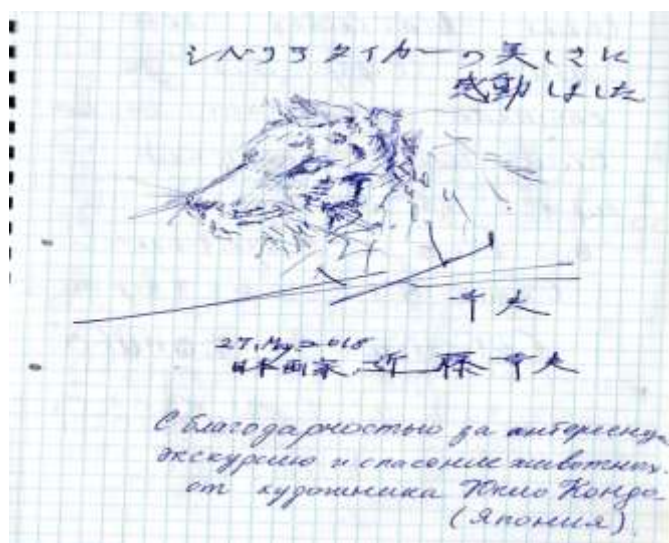 シベリアタイガーの美しさに
感動しました
幸夫
27, May, 2018
日本画家 近藤幸夫
С благодарностью за интересную
экскурсию и спасение животных
от художника Юкио Кондо
(Япония)